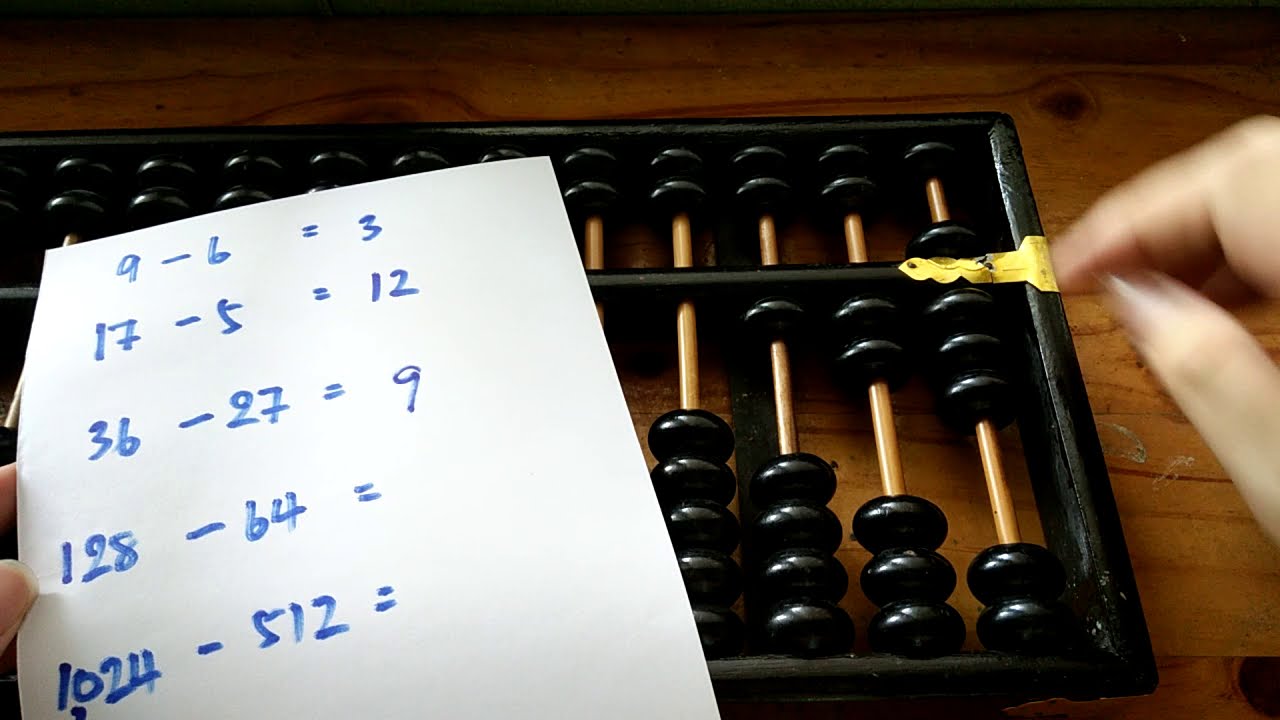 9 - 6 = 3
17 - 5 = 12
36 - 27 = 9
128 - 64 =
1,024 - 512 =